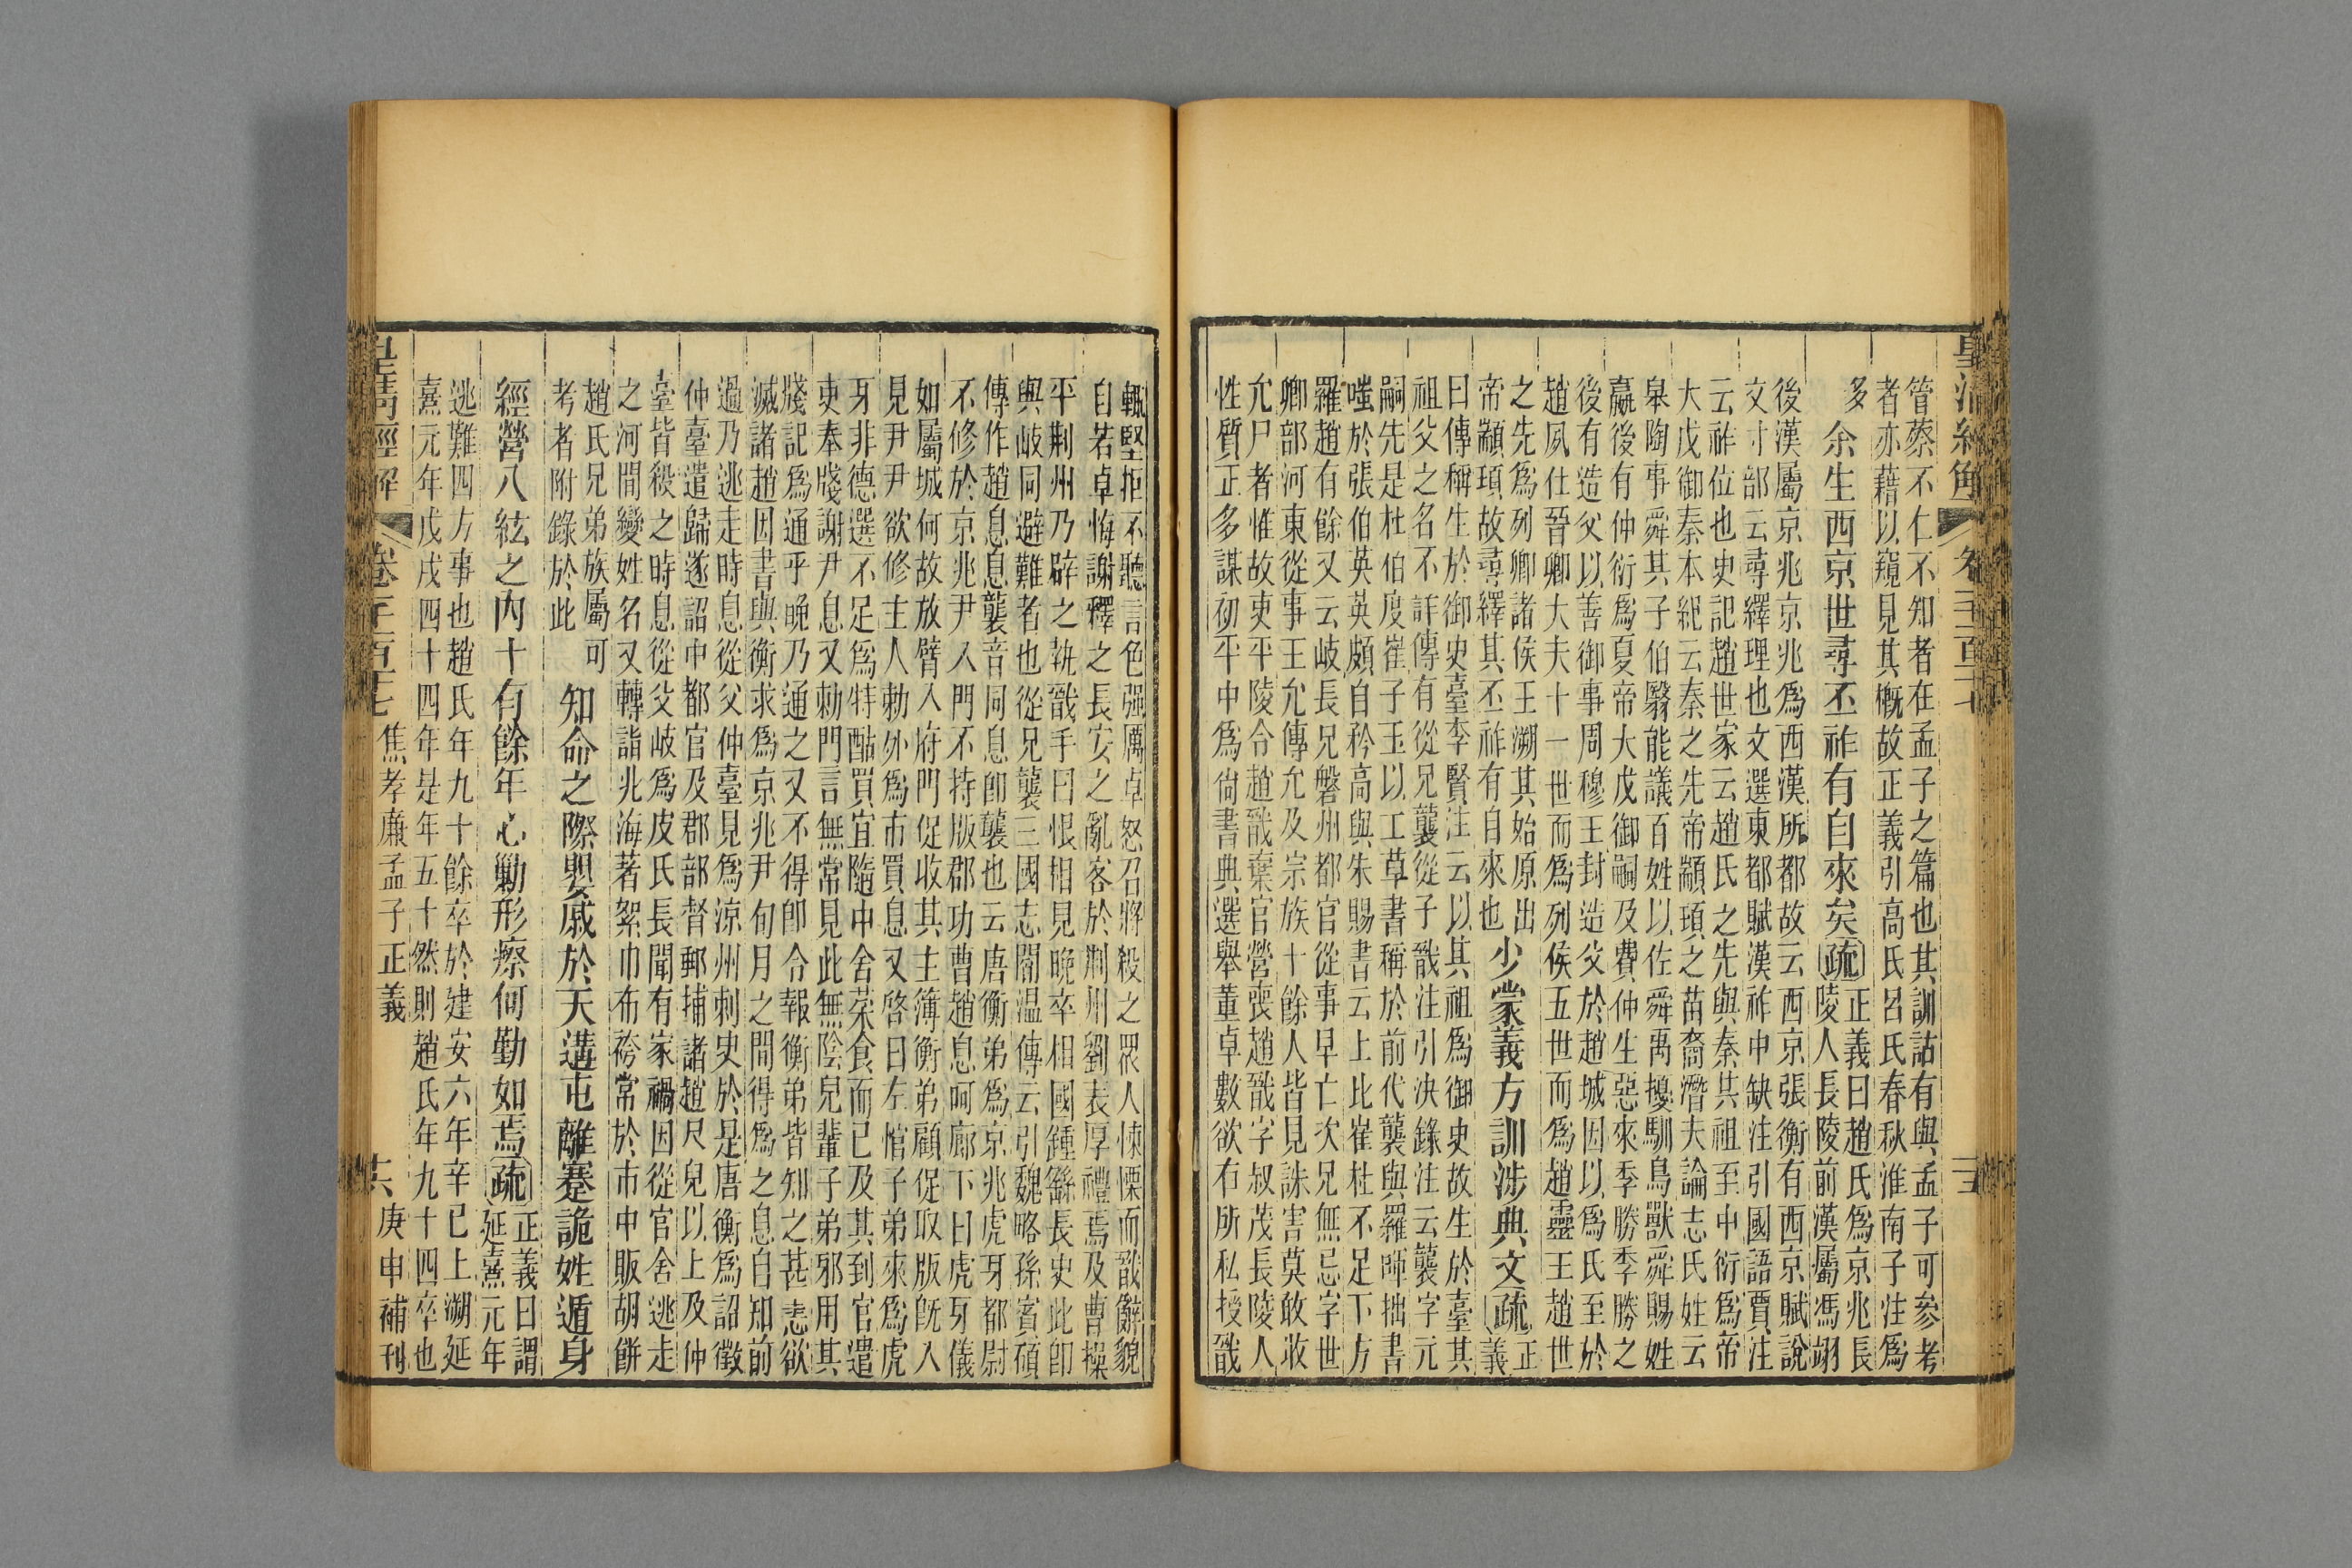 皇清經解
卷一千一百一十七
十三
管蔡不仁不知者在孟子之篇也其訓詁有與孟子可參考
者亦藉以窺見其概故正義引高氏呂氏春秋淮南子注爲
多
余生西京世尋丕祚有自來矣疏
正義曰趙氏爲京兆長
陵人長陵前漢屬馮翊
後漢屬京兆京兆爲西漢所都故云西京張衡有西京賦說
文寸部云尋繹理也文選東都賦漢祚中缺注引國語賈注
云祚位也史記趙世家云趙氏之先與秦共祖至中衍爲帝
大戊御秦本紀云秦之先帝顓頊之苗裔潛夫論志氏姓云
皋陶事舜其子伯翳能議百姓以佐舜禹擾馴鳥獸舜賜姓
嬴後有仲衍爲夏帝大戊御嗣及費仲生惡來季勝季勝之
後有造父以善御事周穆王封造父於趙城因以爲氏至於
趙夙仕晉卿大夫十一世而爲列侯五世而爲趙靈王趙世
之先爲列卿諸侯王溯其始原出
帝顓頊故尋繹其丕祚有自來也
少蒙義方訓涉典文疏
正
義
曰傳稱生於御史臺李賢注云以其祖爲御史故生於臺其
祖父之名不詳傳有從兄襲從子戩注引決錄注云襲字元
嗣先是杜伯度崔子玉以工草書稱於前代襲與羅暉拙書
嗤於張伯英英頗自矜高與朱賜書云上比崔杜不足下方
羅趙有餘又云岐長兄磐州都官從事早亡次兄無忌字世
卿部河東從事王允傳允及宗族十餘人皆見誅害莫敢收
允尸者惟故吏平陵令趙戩棄官營喪趙戩字叔茂長陵人
性質正多謀初平中爲尙書典選舉董卓數欲有所私授戩
輒堅拒不聽言色強厲卓怒召將殺之眾人悚慄而戩辭貌
自若卓悔謝釋之長安之亂客於荆州劉表厚禮焉及曹操
平荆州乃辟之執戩手曰恨相見晚卒相國鍾繇長史此卽
與岐同避難者也從兄襲三國志閻温傳云引魏略孫賓碩
傳作趙息息襲音同息卽襲也云唐衡弟爲京兆虎牙都尉
不修於京兆尹入門不持版郡功曹趙息呵廊下曰虎牙儀
如屬城何故放臂入府門促收其主簿衡弟顧促取版旣入
見尹尹欲修主人勅外爲市買息又啓曰左悺子弟來爲虎
牙非德選不足爲特酤買宜隨中舍菜食而已及其到官遣
吏奉牋謝尹息又勅門言無常見此無陰兒輩子弟邪用其
牋記爲通乎晚乃通之又不得卽令報衡弟皆知之甚恚欲
滅諸趙因書與衡求爲京兆尹旬月之間得爲之息自知前
過乃逃走時息從父仲臺見爲涼州刺史於是唐衡爲詔徵
仲臺遣歸遂詔中都官及郡部督郵捕諸趙尺兒以上及仲
臺皆殺之時息從父岐爲皮氏長聞有家禍因從官舍逃走
之河間變姓名又轉詣北海著絮巾布袴常於市中販胡餅
趙氏兄弟族屬可
考者附錄於此
知命之際嬰戚於天遘屯離蹇詭姓遁身
經營八紘之內十有餘年心勦形瘵何勤如焉疏
正義曰謂
延熹元年
逃難四方事也趙氏年九十餘卒於建安六年辛巳上溯延
熹元年戊戌四十四年是年五十然則趙氏年九十四卒也
皇清經解
卷一千一百一十七
焦孝廉孟子正義
六
庚申補刊